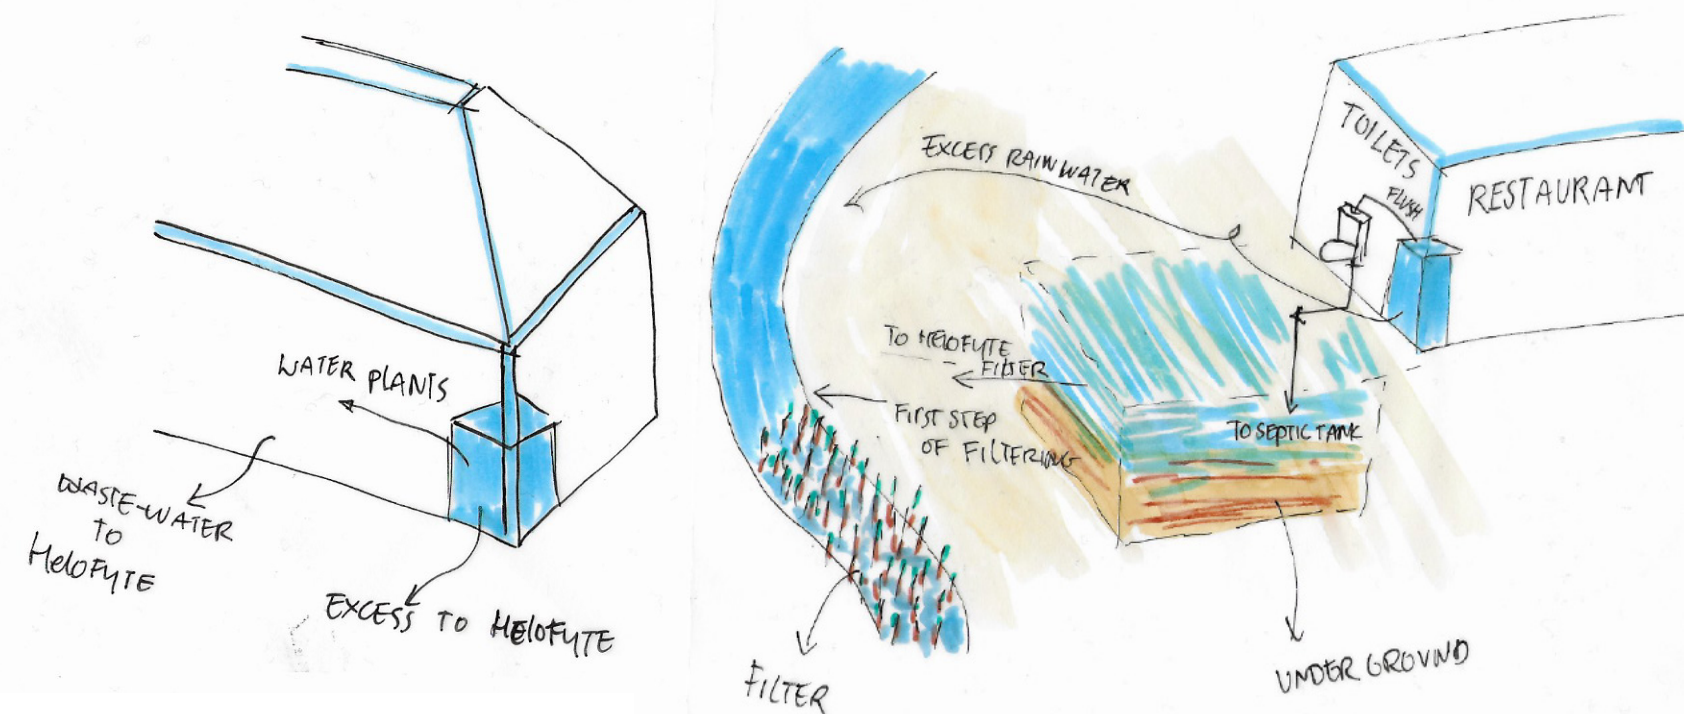 WATER PLANTS
WASTE-WATER
TO
HELOFYTE
EXCESS TO HELOFYTE
EXCESS RAINWATER
TOILETS
FLUSH
RESTAURANT
TO HELOFYTE
FILTER
FIRST STEP
OF FILTERING
TO SEPTIC TANK
FILTER
UNDERGROUND